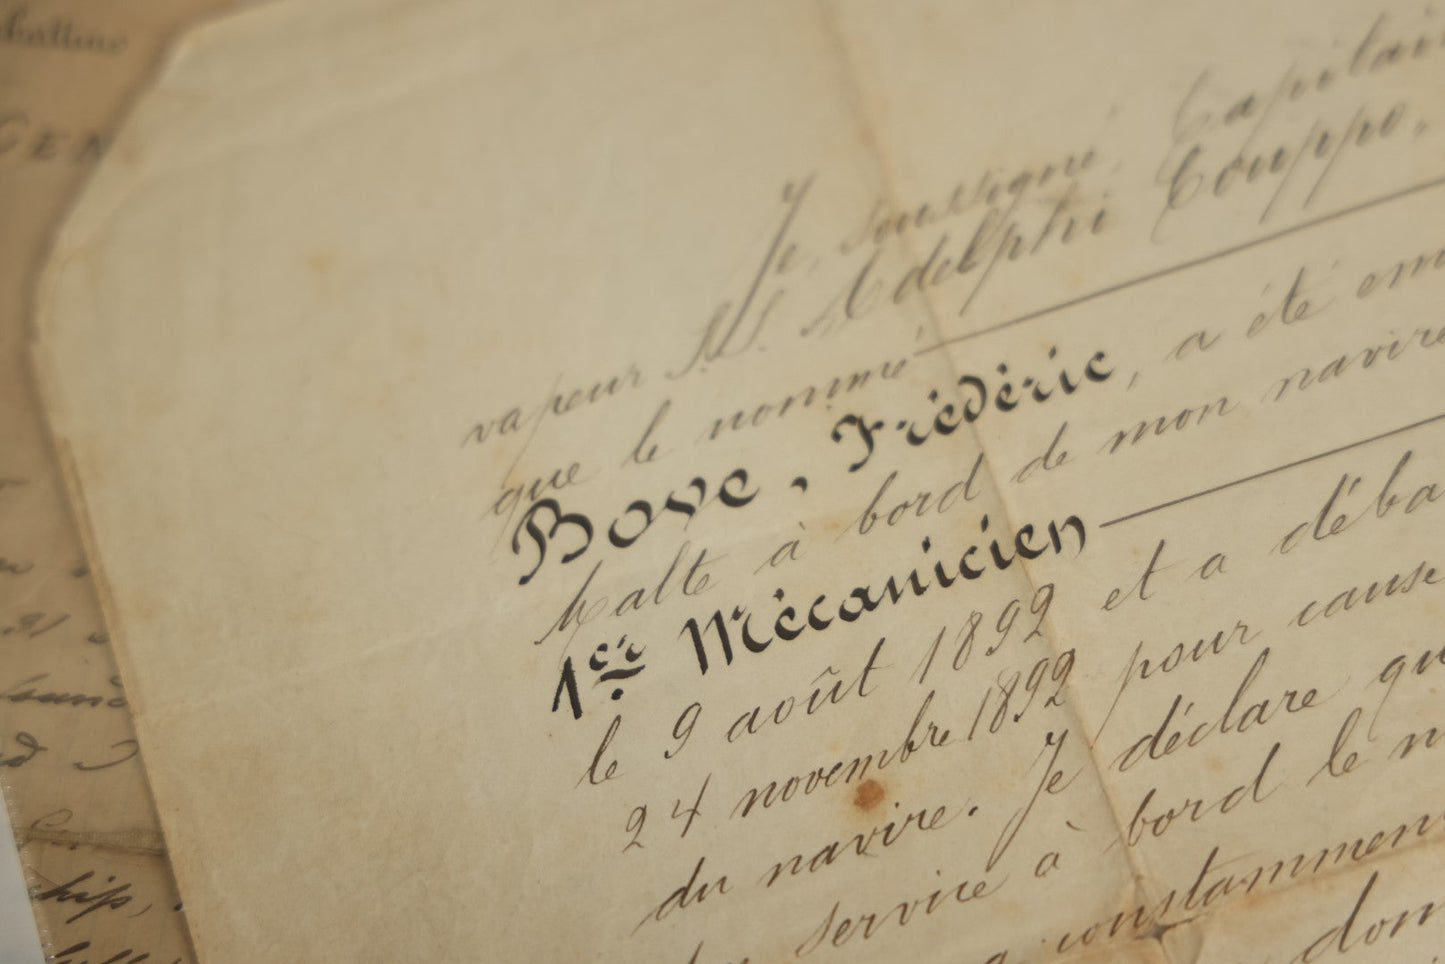 Je, soussigné, Capitai
vapeur S.S. Adelphi Couppo,
que le nommé
Bove, Frédéric, a été em
Malte à bord de mon navire
1er Mécanicien
le 9 août 1892 et a déba
24 novembre 1892 pour cause
du navire. Je déclare qu
service à bord le m
a constammen
don
GEN
hip,